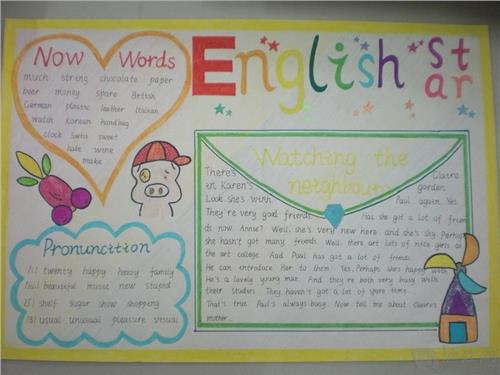 English Star
Now Words
much string chocolate paper
beer money spare British
German plastic leather Italian
watch Korean handbag
clock Swiss sweet
hate wine
make
Pronunction
/i/ twenty happy heavy family
/u:/ beautiful music new stupid
/ʃ/ shelf sugar show shopping
/ʒ/ usual unusual pleasure visual
Watching the
neighbours
There's Claire
in Karen's garden.
Look she's with Paul again Yes.
They're very good friends. Has she got a lot of frien
ds now. Anne? Well. she's very new here. and she's shy Perhaps
she hasn't got many friends. Well. there art lots of nice girls at
the art college. And Paul has got a lot of friends.
He can introduce Her to them. Yes. Perhaps she's happy with
He's a lovely young man. And they're both very busy with
their studies They haven't got a lot of spare time
That's true. Paul's always busy. Now tell me about Claire's
mother...